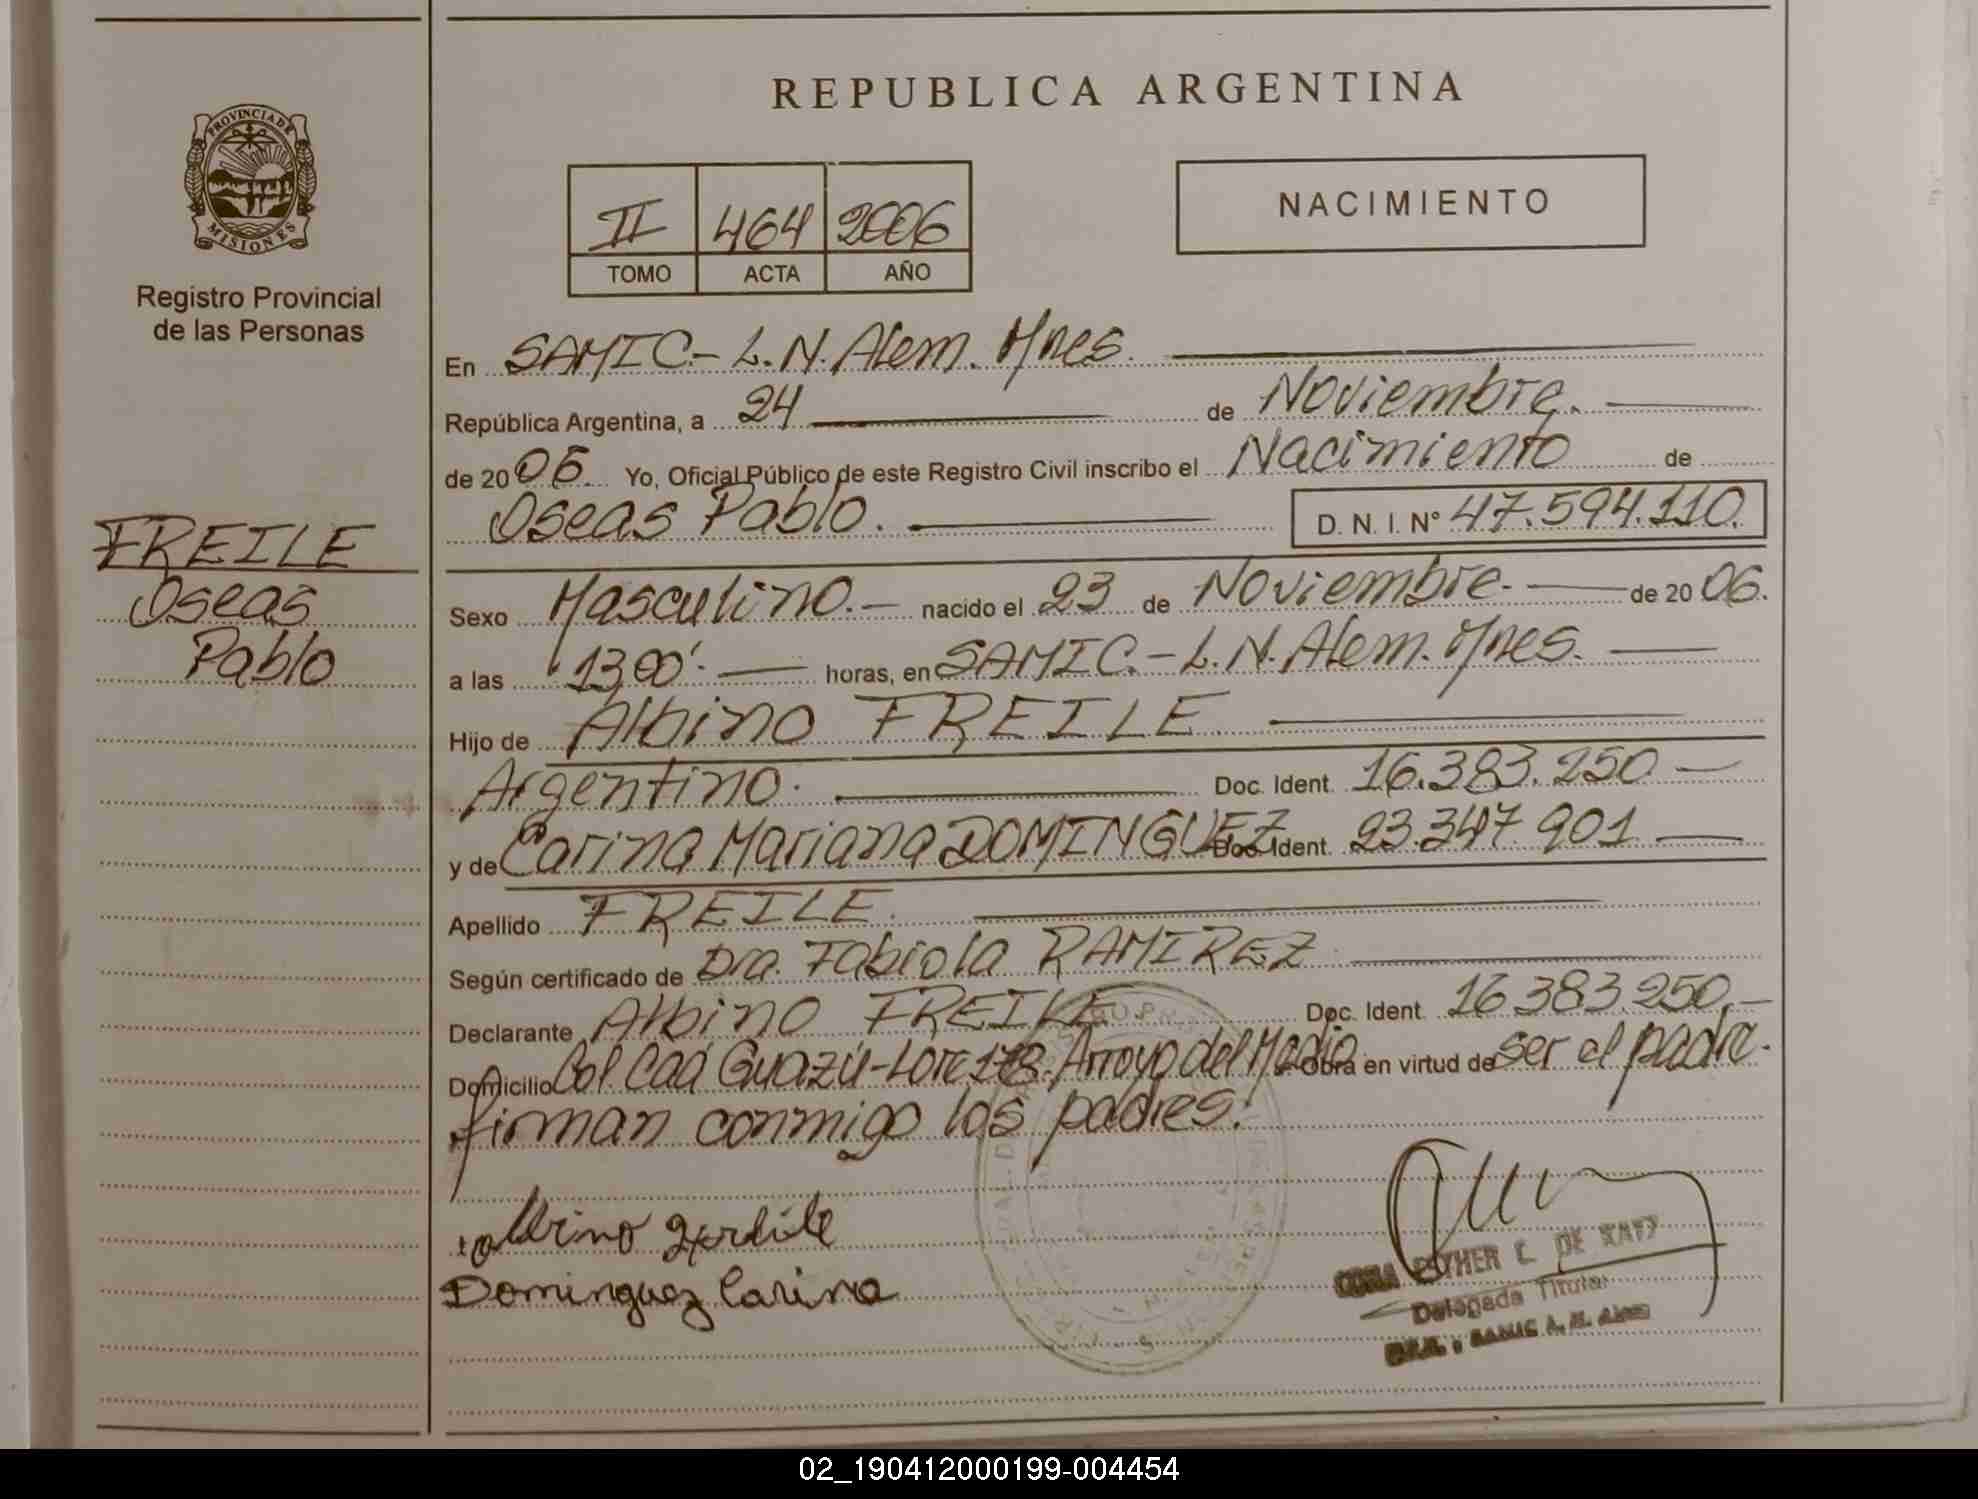 REPUBLICA ARGENTINA
PROVINCIA DE
MISIONES
Registro Provincial
de las Personas
NACIMIENTO
II 464 2006
TOMO ACTA AÑO
En SAMIC.- L.N. Alem. Mnes.
República Argentina, a 24 de Noviembre.
de 20 06. Yo, Oficial Público de este Registro Civil inscribo el Nacimiento de
Oseas Pablo. D. N. I. Nº 47.594.110.
FREILE
Oseas
Pablo
Sexo Masculino.- nacido el 23 de Noviembre.- de 20 06.
a las 13,00'. horas, en SAMIC.- L.N. Alem. Mnes.
Hijo de Albino FREILE
Argentino. Doc. Ident. 16.383.250
y de Carina Mariana DOMINGUEZ Doc. Ident. 23.347.901
Apellido FREILE.
Según certificado de Dra. Fabiola RAMIREZ
Declarante Albino FREILE Doc. Ident. 16.383.250.-
Domicilio Col. Caá Guazú-Lote 178. Arroyo del Medio Obra en virtud de ser el padre.
firman conmigo los padres.
Albino
Dominguez Carina
ESTHER DE
Delegada Titular
SAMIC L. N. Alem
02_190412000199-004454